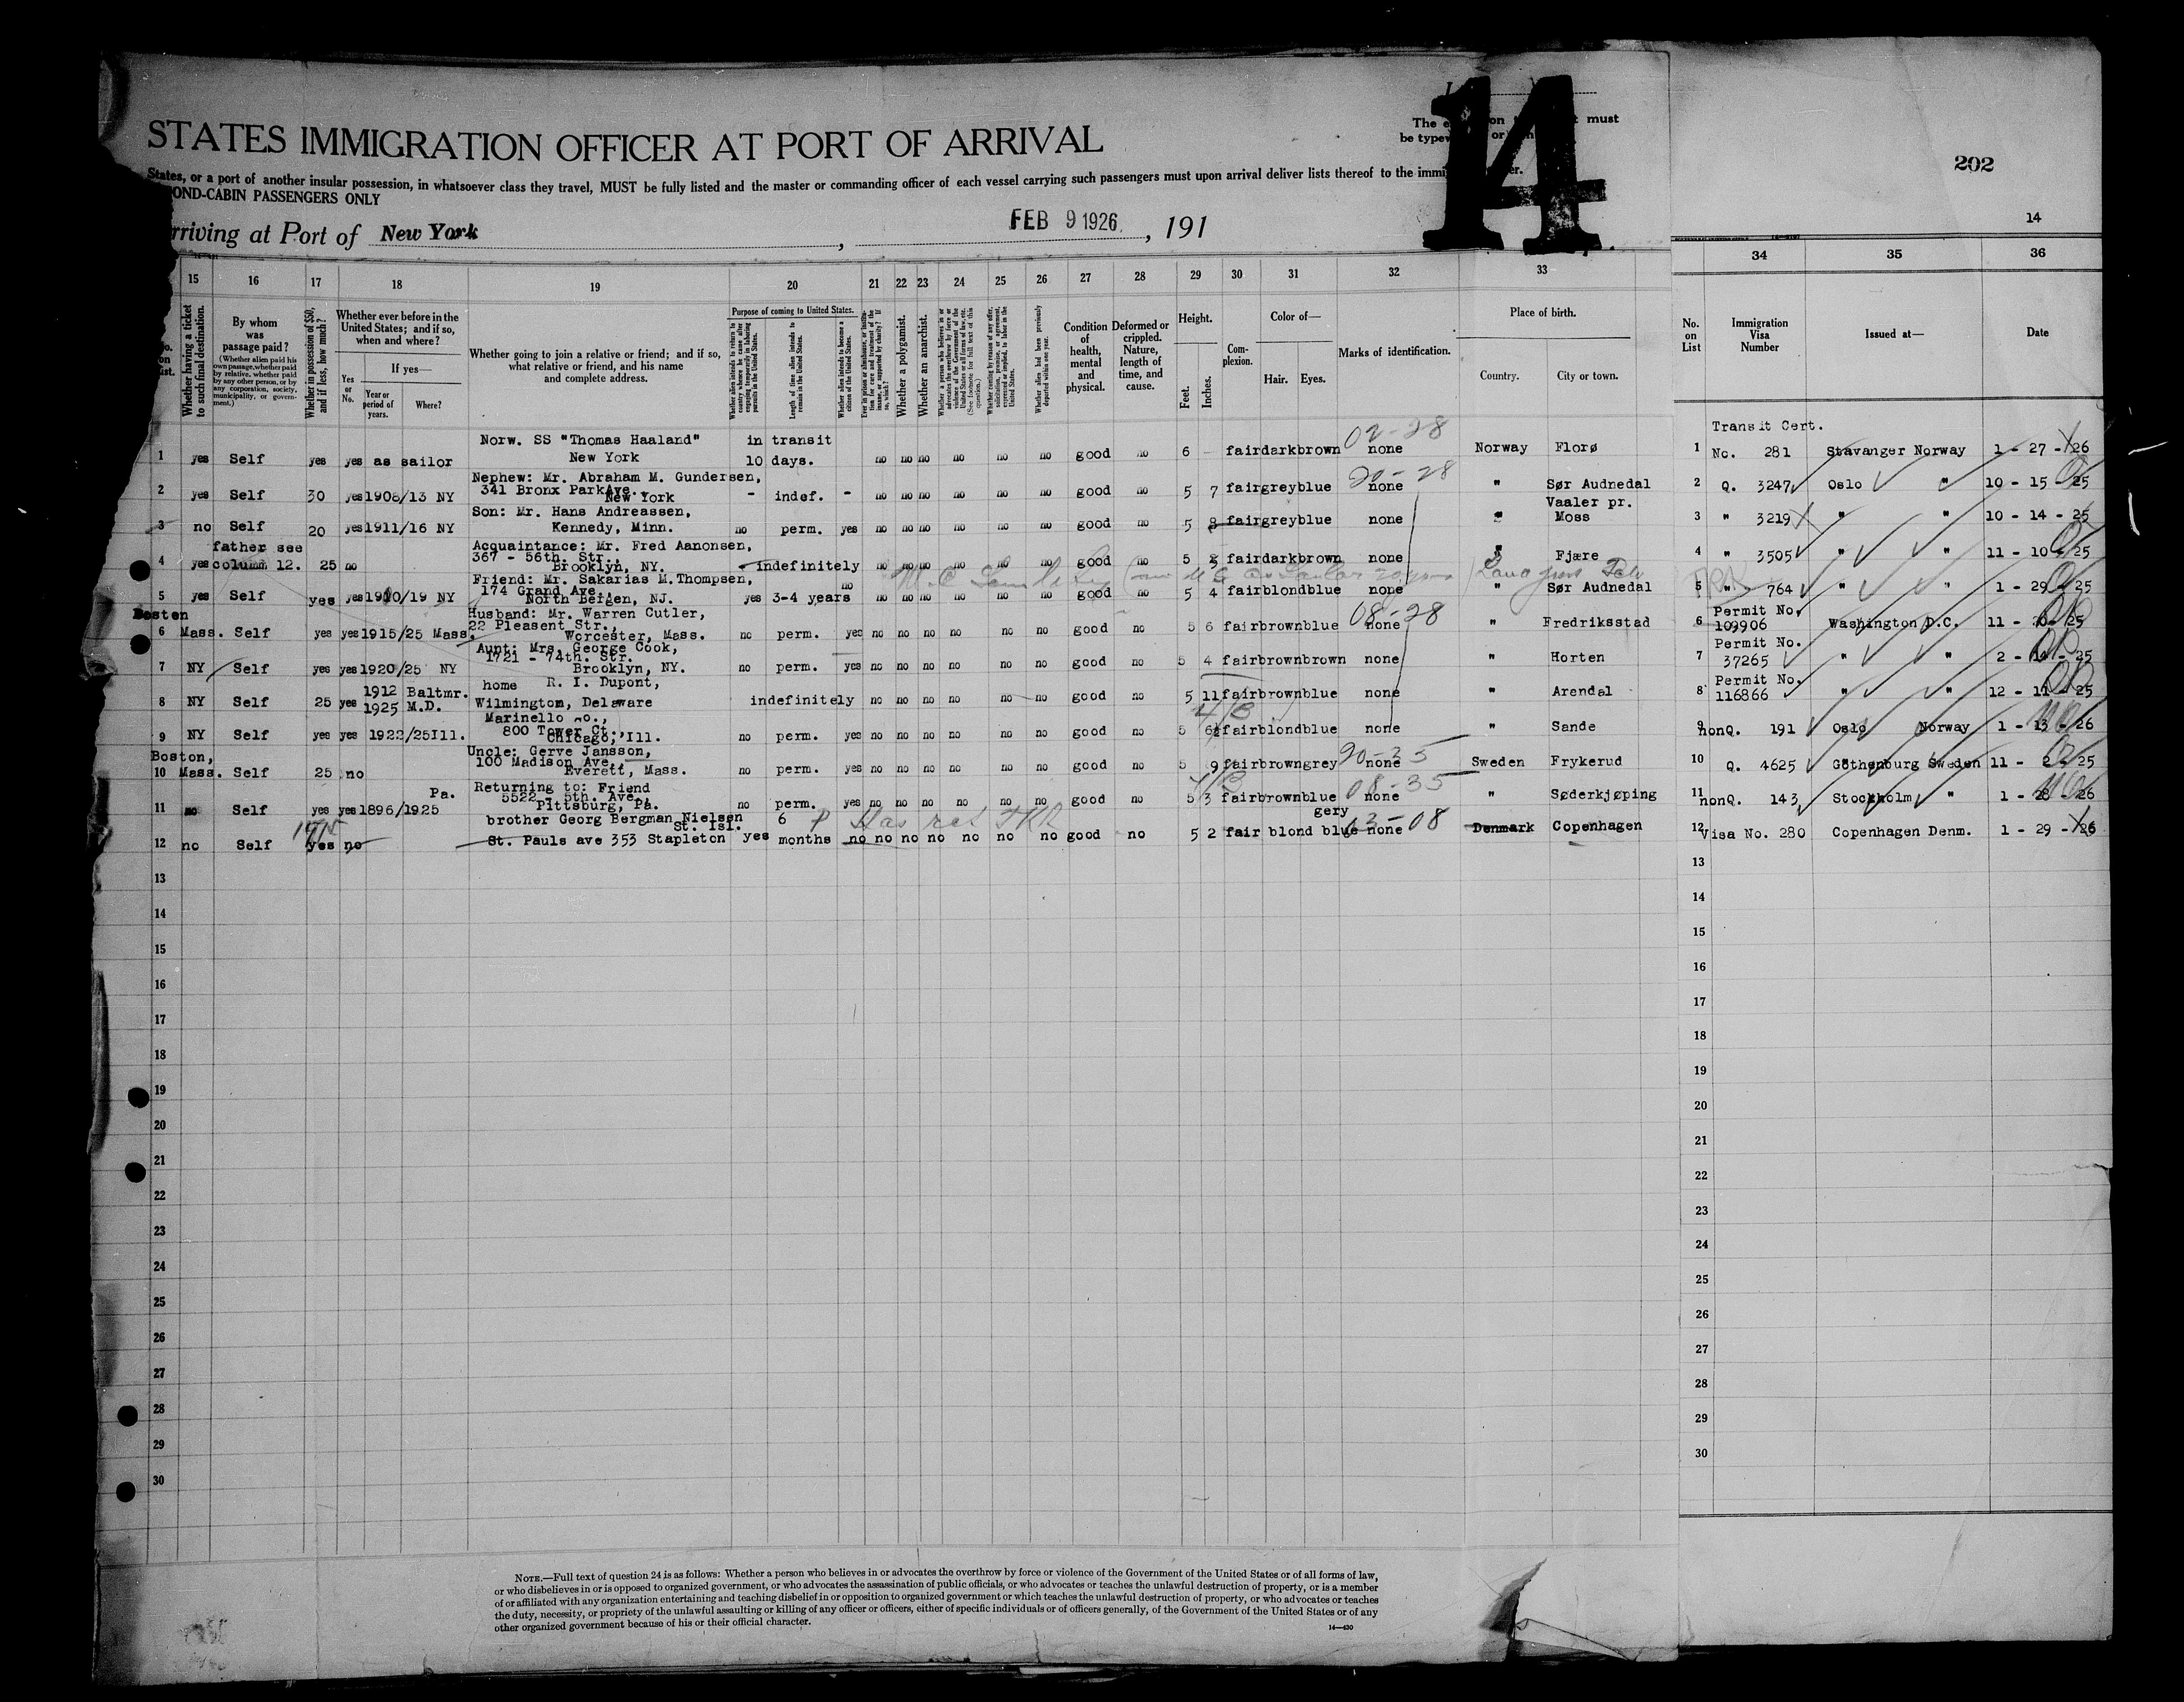 14
The e on t must
be typew or n
202
14
STATES IMMIGRATION OFFICER AT PORT OF ARRIVAL
States, or a port of another insular possession, in whatsoever class they travel, MUST be fully listed and the master or commanding officer of each vessel carrying such passengers must upon arrival deliver lists thereof to the immi er.
OND-CABIN PASSENGERS ONLY
rriving at Port of New York, FEB 9 1926, 191
15 16 17 18 19 20 21 22 23 24 25 26 27 28 29 30 31 32 33 34 35 36
No. on List.
Whether having a ticket to such final destination.
By whom was passage paid?
(Whether alien paid his own passage, whether paid by relative, whether paid by any other person, or by any corporation, society, municipality, or government.)
Whether in possession of $50, and if less, how much?
Whether ever before in the United States; and if so, when and where?
Yes or No.
If yes—
Year or period of years.
Where?
Whether going to join a relative or friend; and if so, what relative or friend, and his name and complete address.
Purpose of coming to United States.
Length of time alien intends to remain in the United States.
Whether alien intends to become a citizen of the United States.
Whether a polygamist.
Whether an anarchist.
Condition of health, mental and physical.
Deformed or crippled. Nature, length of time, and cause.
Height.
Feet.
Inches.
Complexion.
Color of—
Hair.
Eyes.
Marks of identification.
Place of birth.
Country.
City or town.
No. on List
Immigration Visa Number
Issued at—
Date
Norw. SS "Thomas Haaland" in transit 02-28 Transit Cert.
1 yes Self yes yes as sailor New York 10 days. no no no no no no good no 6 - fair dark brown none Norway Florø 1 No. 281 Stavanger Norway 1 - 27 - 26
Nephew: Mr. Abraham M. Gundersen,
341 Bronx Park Ave.
2 yes Self 30 yes 1908/13 NY New York - indef. - no no no no no no good no 5 7 fair grey blue none " Sør Audnedal 2 Q. 3247 Oslo " 10 - 15 - 25
Son: Mr. Hans Andreassen, Vaaler pr.
3 no Self 20 yes 1911/16 NY Kennedy, Minn. no perm. yes no no no no no no good no 5 8 fair grey blue none " Moss 3 " 3219 " " 10 - 14 - 25
father see Acquaintance: Mr. Fred Aanonsen,
367 - 56th. Str.,
4 yes column 12. 25 no Brooklyn, NY. - indefinitely no no no no no no good no 5 fair dark brown none " Fjære 4 " 3505 " " 11 - 10 - 25
Friend: Mr. Sakarias M. Thompsen, no
174 Grand Ave.,
5 yes Self yes yes 1910/19 NY North Bergen, NJ. yes 3-4 years no no no no no no good no 5 4 fair blond blue none " Sør Audnedal 5 " 764 " " 1 - 29 - 25
Boston Husband: Mr. Warren Cutler, 08-28 Permit No.
22 Pleasent Str.,
6 Mass. Self yes yes 1915/25 Mass. Worcester, Mass. no perm. yes no no no no no no good no 5 6 fair brown blue none " Fredriksstad 6 109906 Washington D.C. 11 - 20 - 25
Aunt: Mrs. George Cook, Permit No.
1721 - 74th. Str.
7 NY Self yes yes 1920/25 NY Brooklyn, NY. no perm. yes no no no no no no good no 5 4 fair brown brown none " Horten 7 37265 " " 2 - 14 - 25
home R. I. Dupont, Permit No.
1912 Baltmr.
8 NY Self 25 yes 1925 M.D. Wilmington, Delaware indefinitely no no no no no no good no 5 11 fair brown blue none " Arendal 8 116866 " " 12 - 11 - 25
Marinello Co.,
800 Tower Ct.,
9 NY Self yes yes 1922/25 Ill. Chicago, Ill. no perm. yes no no no no no no good no 5 6½ fair blond blue none " Sande 9 nonQ. 191 Oslo Norway 1 - 13 - 26
Boston, Uncle: Gerve Jansson,
100 Madison Ave.,
10 Mass. Self 25 no Everett, Mass. no perm. yes no no no no no no good no 5 9 fair brown grey none Sweden Frykerud 10 Q. 4625 Gøthenburg Sweden 11 - 2 - 25
Pa. Returning to: Friend 08-35
5522 - 5th. Ave.,
11 no Self yes yes 1896/1925 Pittsburg, Pa. no perm. yes no no no no no no good no 5 3 fair brown blue none " Søderkjøping 11 nonQ. 143 Stockholm " 1 - 28 - 26
brother Georg Bergman Nielsen 6 gery
St. Isl.
12 no Self yes no St. Pauls ave 353 Stapleton yes months no no no no no no no good no 5 2 fair blond blue none Denmark Copenhagen 12 Visa No. 280 Copenhagen Denm. 1 - 29 - 26
13 13
14 14
15 15
16 16
17 17
18 18
19 19
20 20
21 21
22 22
23 23
24 24
25 25
26 26
27 27
28 28
29 29
30 30
NOTE.—Full text of question 24 is as follows: Whether a person who believes in or advocates the overthrow by force or violence of the Government of the United States or of all forms of law,
or who disbelieves in or is opposed to organized government, or who advocates the assassination of public officials, or who advocates or teaches the unlawful destruction of property, or is a member
of or affiliated with any organization entertaining and teaching disbelief in or opposition to organized government or which teaches the unlawful destruction of property, or who advocates or teaches
the duty, necessity, or propriety of the unlawful assaulting or killing of any officer or officers, either of specific individuals or of officers generally, of the Government of the United States or of any
other organized government because of his or their official character.
14—430